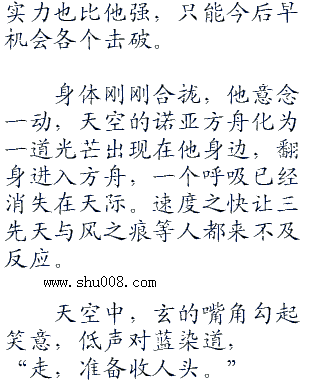 实力也比他强，只能今后早
机会各个击破。
身体刚刚合拢，他意念
一动，天空的诺亚方舟化为
一道光芒出现在他身边，翻
身进入方舟，一个呼吸已经
消失在天际。速度之快让三
先天与风之痕等人都来不及
反应。
www.shu008.com
天空中，玄的嘴角勾起
笑意，低声对蓝染道，
“走，准备收人头。”